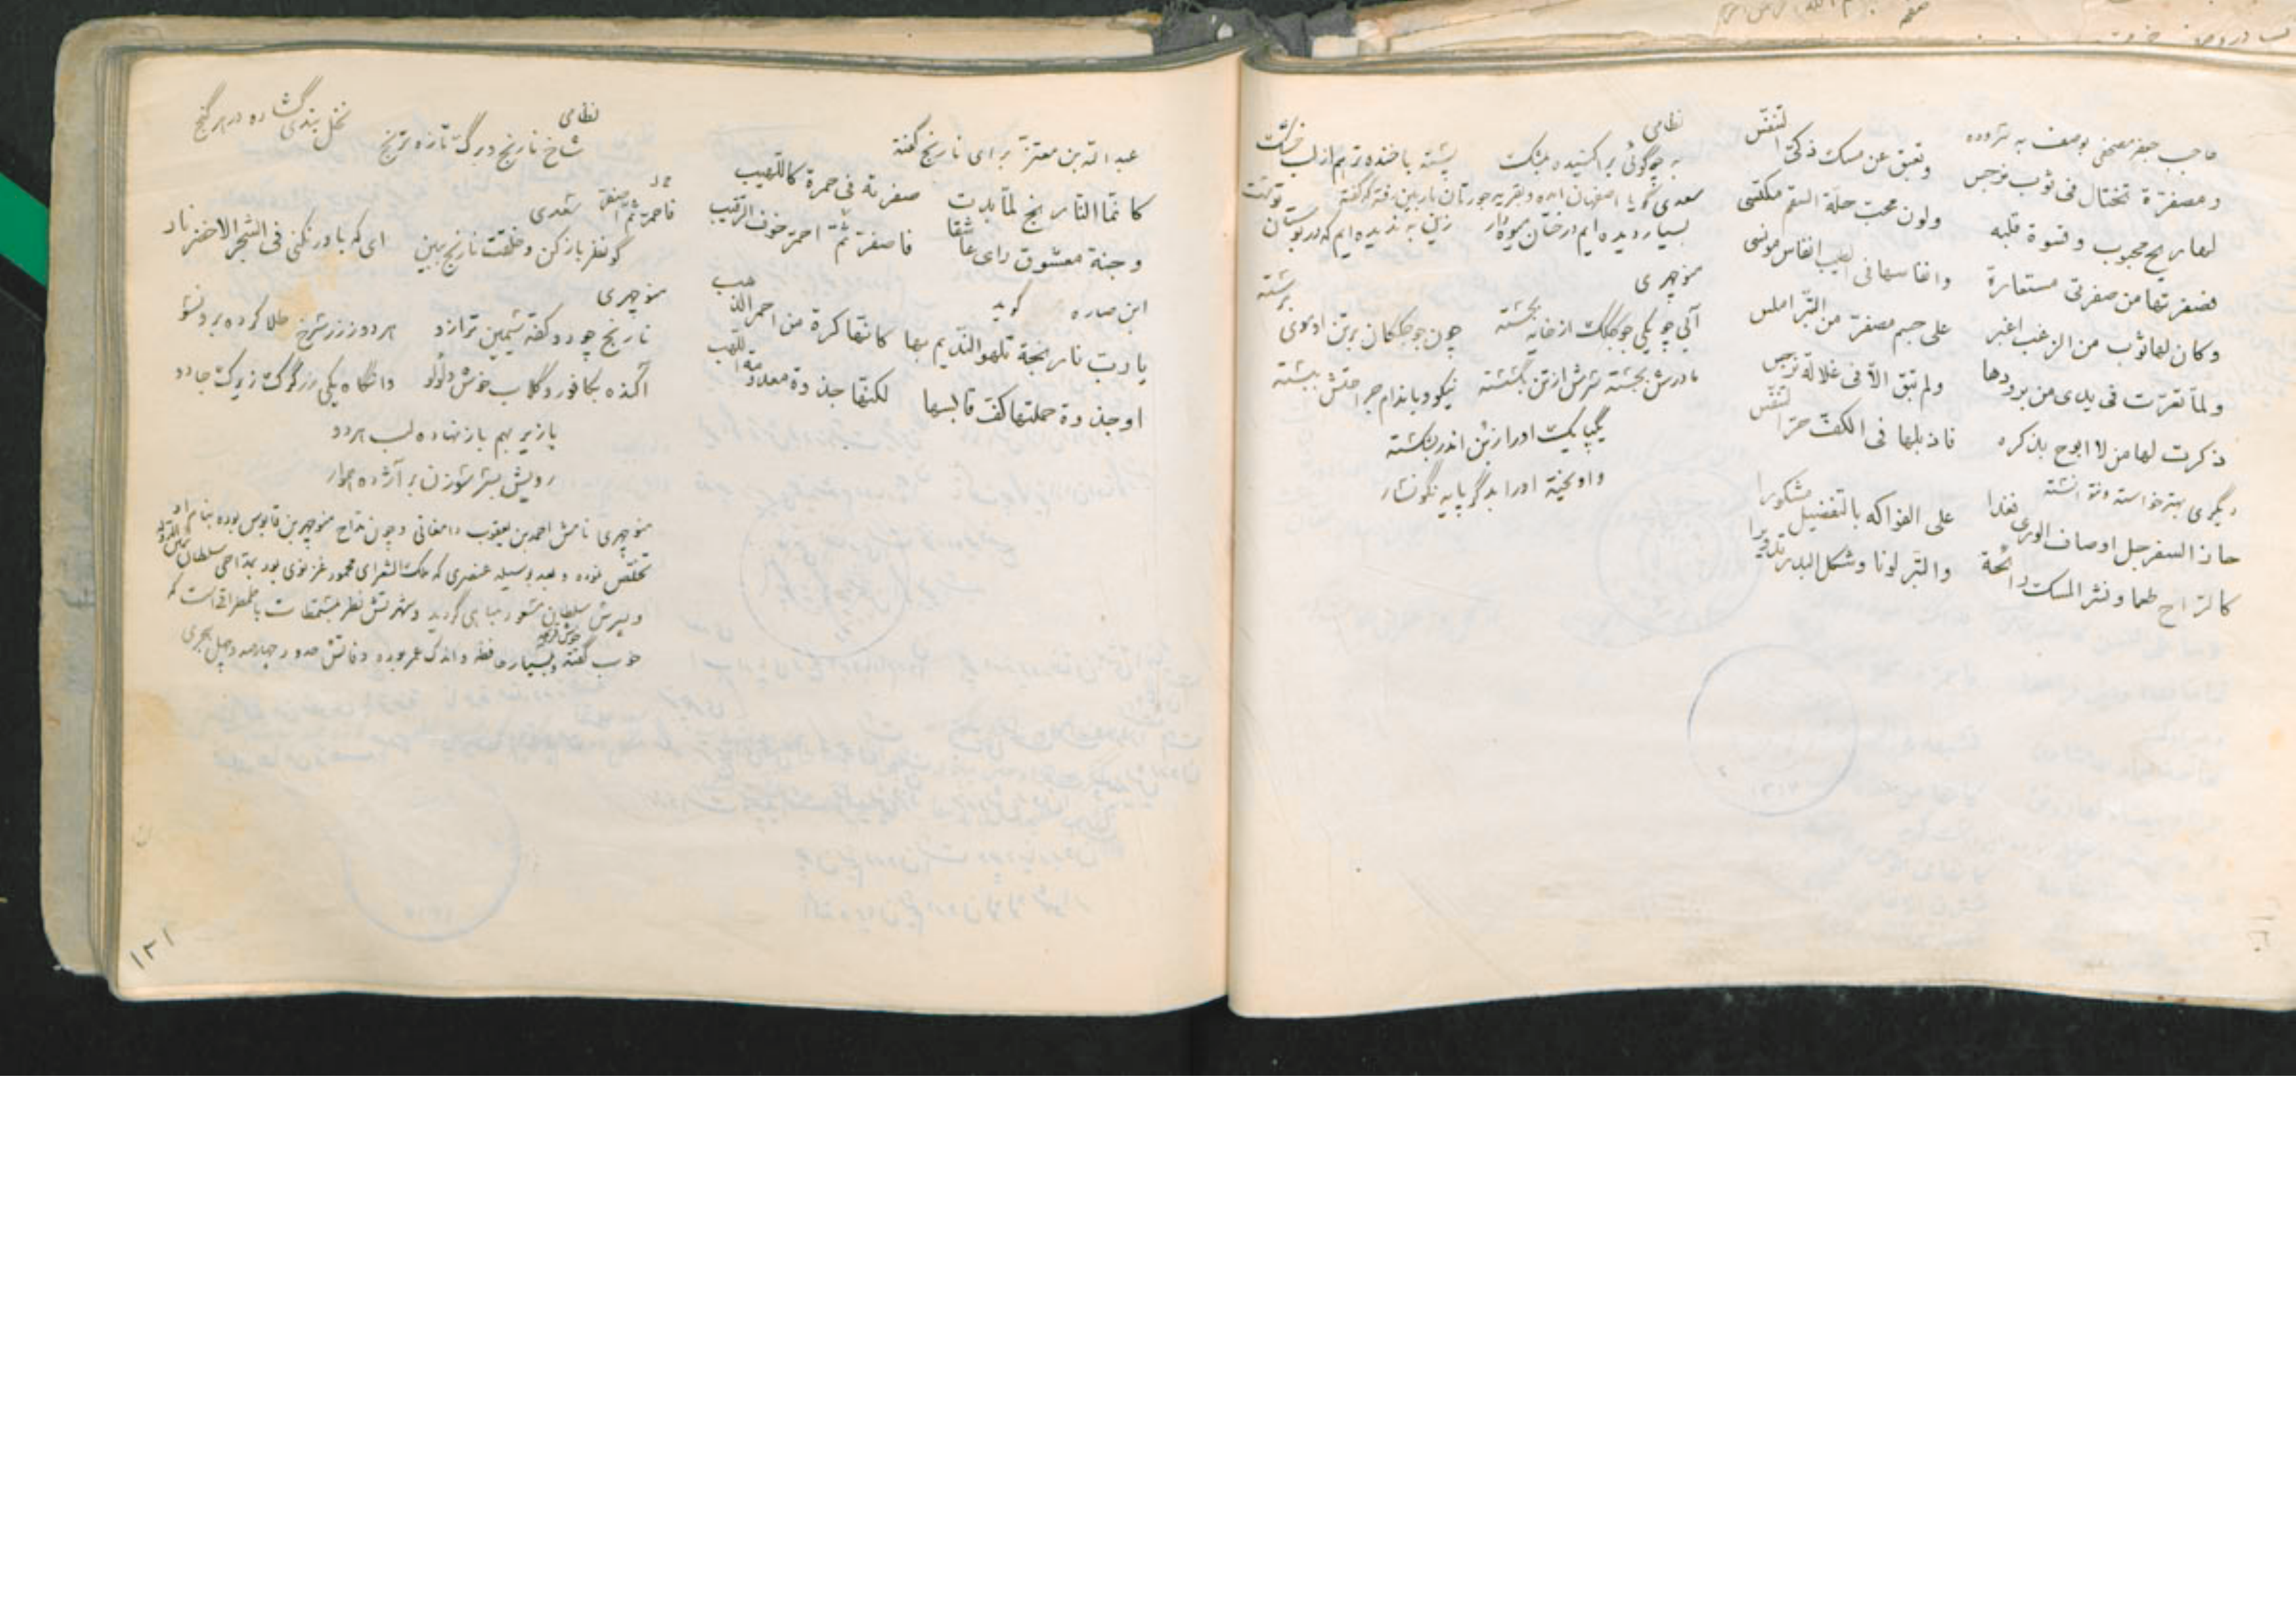 حاجب جعفر مصحفی بوصف به سروده
و مصفرّة تختال فی ثوب نرجس وتعبق عن مسک ذکیّ التنفّس
لها ریح محبوب وقسوة قلبه ولون محبّ حلّة السقم مکتسی
فصفرتها من صفرتی مستعارة وانفاسها فی الطیب انفاس مونسی
وکان لها ثوب من الزغب اغبر علی جسم مصفرّ من التبر املس
ولمّا تعرّت فی یدی من برودها ولم تبق الاّ فی غلالة نرجس
ذکرت لها من لا ابوح بذکره فاذبلها فی الکفّ حرّ التنفّس
دیگری
حاز السفرجل اوصاف الوری فغدا علی الفواکه بالتفضیل مشکورا
کالراح طعما ونشر المسک رائحة والتبر لونا وشکل البدر تدویرا
نظامی
به چو گوئی بر اکنیده بمشک پسته با خنده تر هم از لب خشک
سعدی گویا اصفهان آمده
بسیار دیده ایم درختان میوه‌دار زین به ندیده ایم که در بوستان توست
منوچهری
آبی چو یکی جوجگک از خایه بجسته چون جوجگکان بر تن او موی برسته
مادرش بجسته سرش از تن بگسسته نیکو و باندام جراحتش ببسته
یکپایک او را ز بن اندر بشکسته
واویخته او را بدگر پایه نگونسار
عبدالله بن معتزّ برای نارنج گفته
کانّما النارنج لمّا بدت صفرته فی حمرة کاللّهیب
وجنة معشوق رای عاشقا فاصفرّ ثمّ احمرّ خوف الرقیب
ابن صاره گوید
یا ربّ نارنجة تلهو النّدیم بها کانّها کرة من احمر الذهب
او جذوة حملتها کفّ قابسها لکنّها جذوة معدومة اللّهب
نظامی
شاخ نارنج و برگ تازه ترنج نخل بندی گشاده در هر کنج
فاحمرّ ثمّ اصفرّ
سعدی
گو نظر باز کن و خلقت نارنج ببین ای که باور نکنی فی الشجر الاخضر نار
منوچهری
نارنج چو دو کفّه سیمین ترازو هر دو ز زر سرخ طلا کرده برونسو
آکنده بکافور و گلاب خوش و لؤلؤ وانگاه یکی زرگرک زیرک جادو
با زیر بهم باز نهاده لب هر دو
رویش بسر سوزن بر آژده هموار
منوچهری نامش احمد بن یعقوب دامغانی و چون مدّاح منوچهر بن قابوس بوده بنام او
تخلّص نموده و بعد بوسیله عنصری که ملک الشعرای محمود غزنوی بود بمدّاحی سلطان
و پسرش سلطان مسعود مباهی گردید و شهرتش نظر بمسمّطات باطمطراقی است که
خوب گفته و بسیار خوش قریحه و اندک عمر بوده وفاتش حدود چهارصد و چهل هجری
۱۲۱